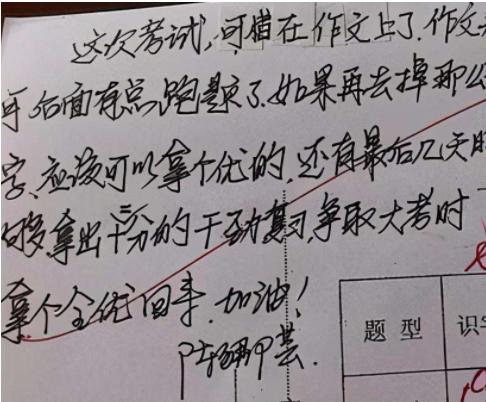 这次考试,可惜在作文上了.作文
后面有点跑题了.如果再去掉那么
字、应该可以拿个优的,还有最后几天
够拿出十二分的干劲复习,争取大考时
拿个全优回来.加油!
题 型 识